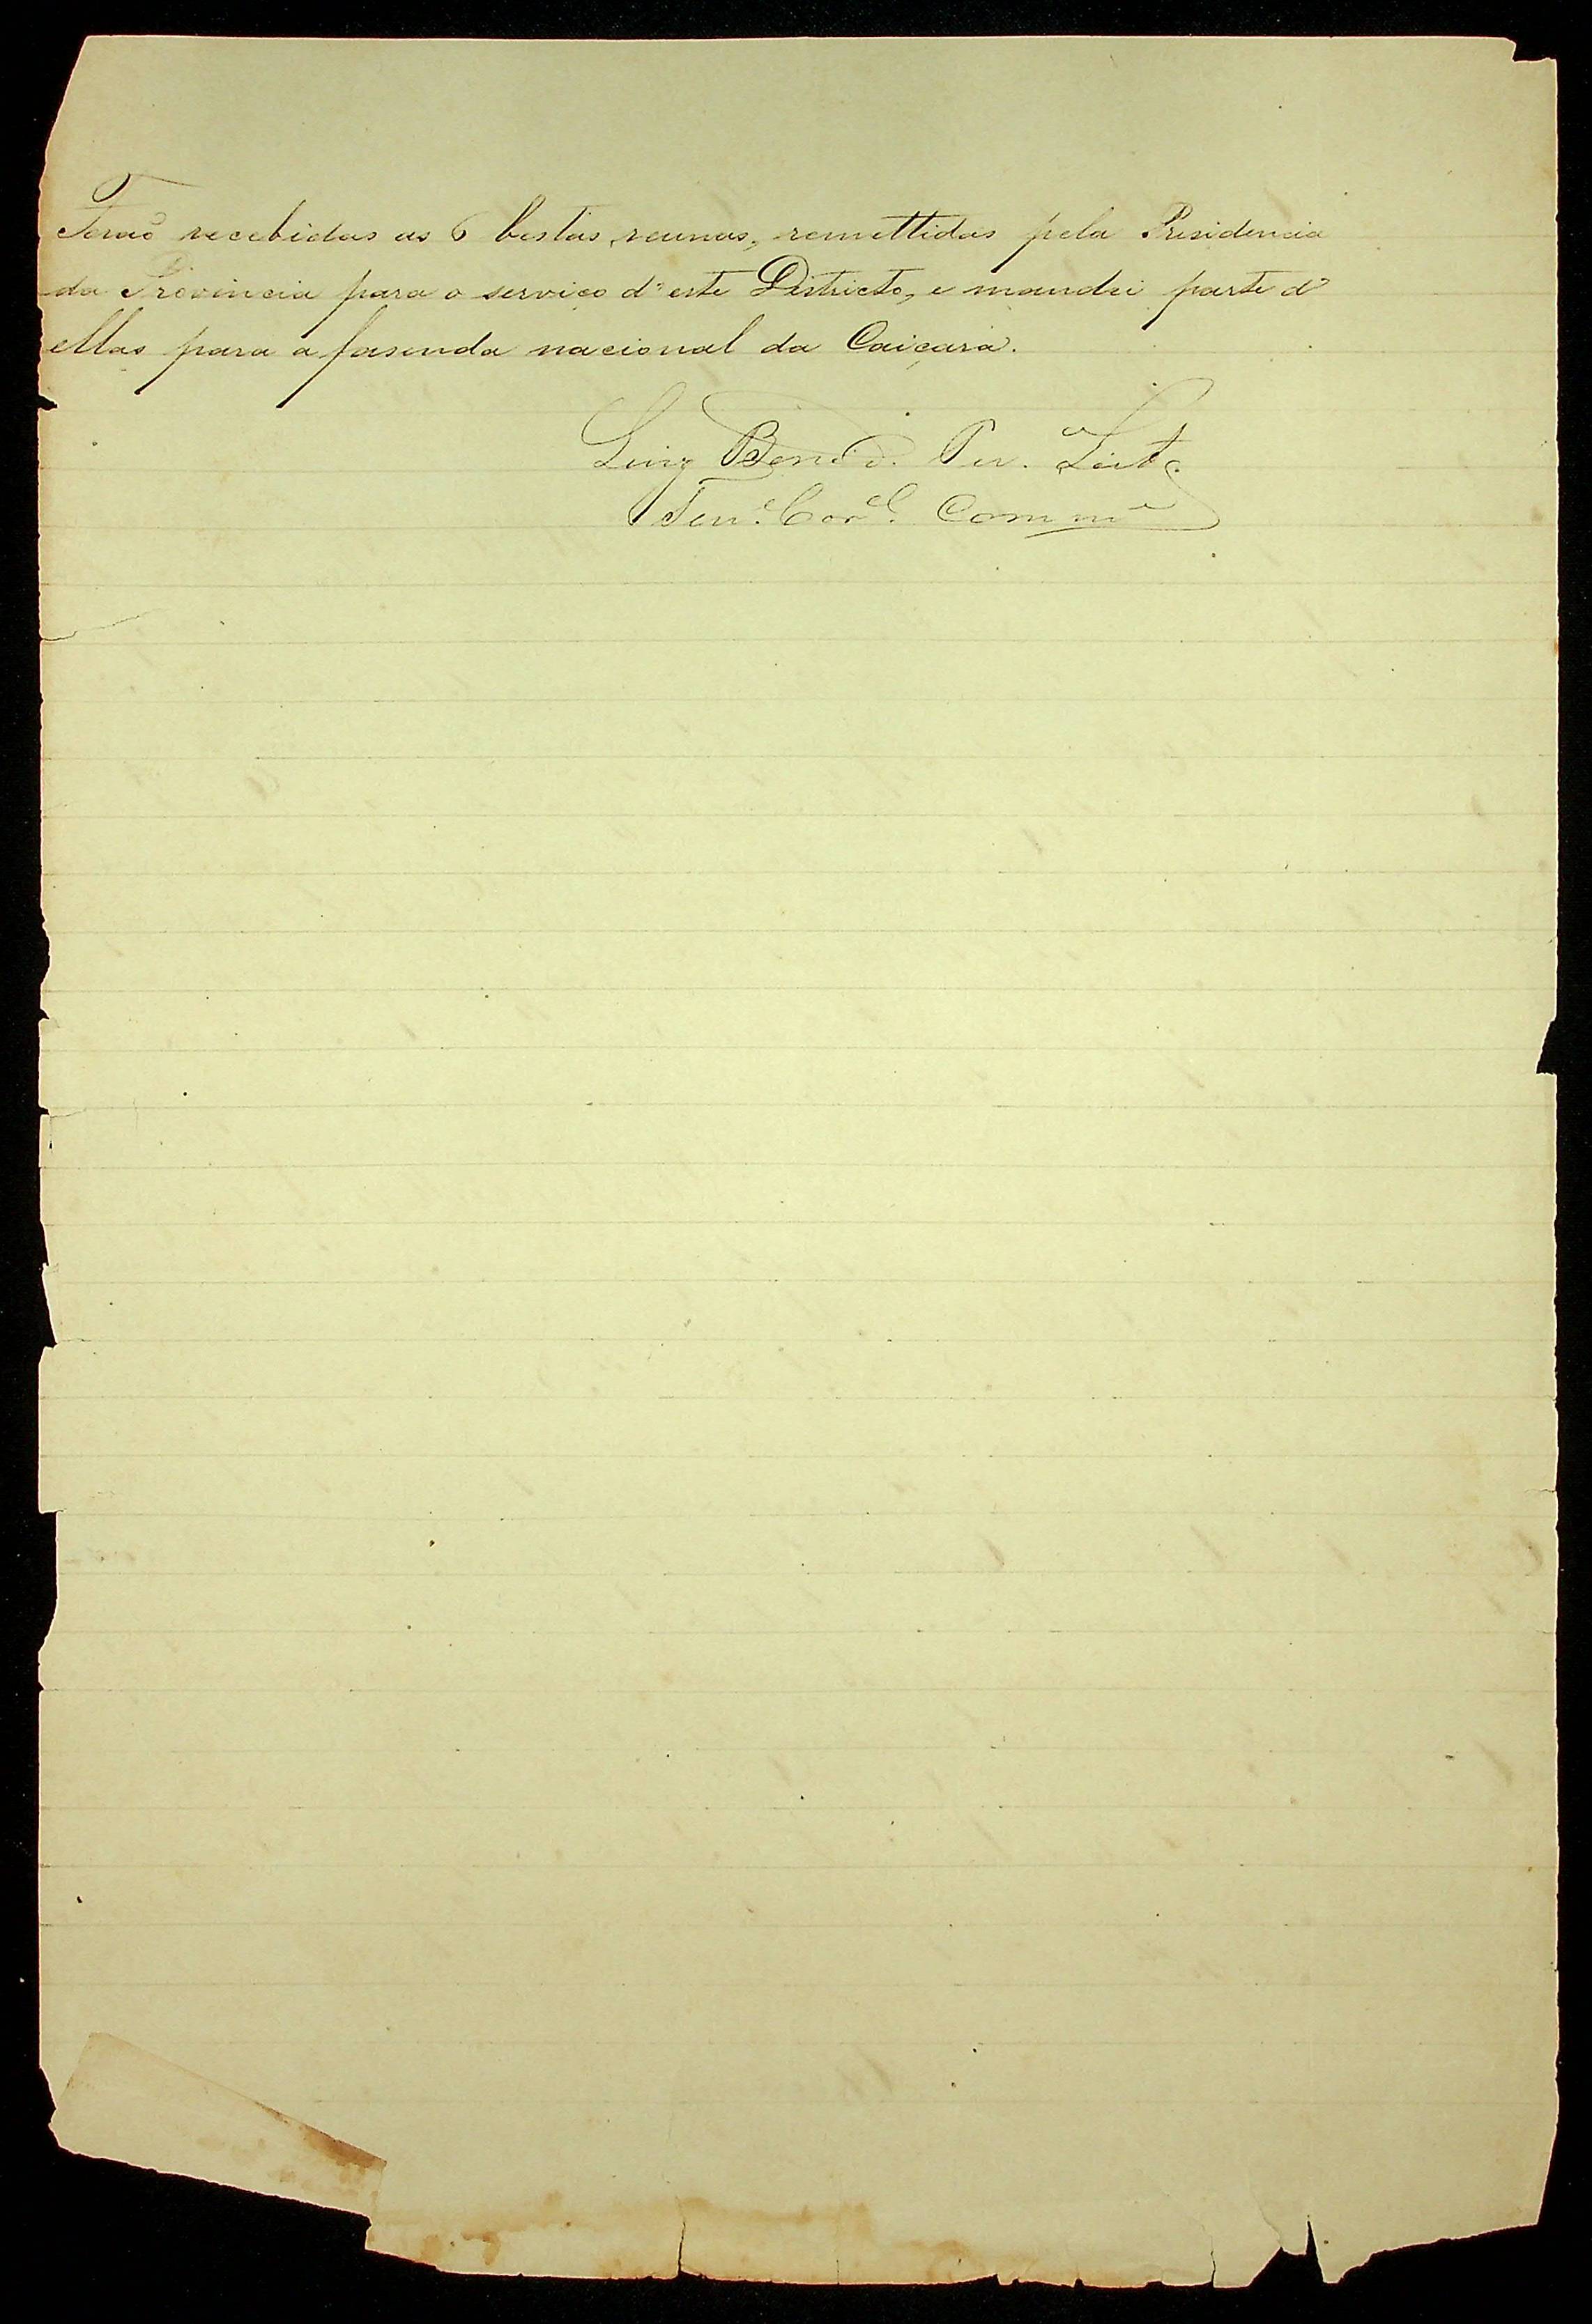 Foraõ recebidas as 6 bestas reunas, remettidas pela Presidencia
da Provincia para o serviço d'este Districto, e mandei parte d'
ellas para a fasenda nacional da Caiçara.
Luiz Bened. Per. Leite
Ten.e Cor.el Comm.e